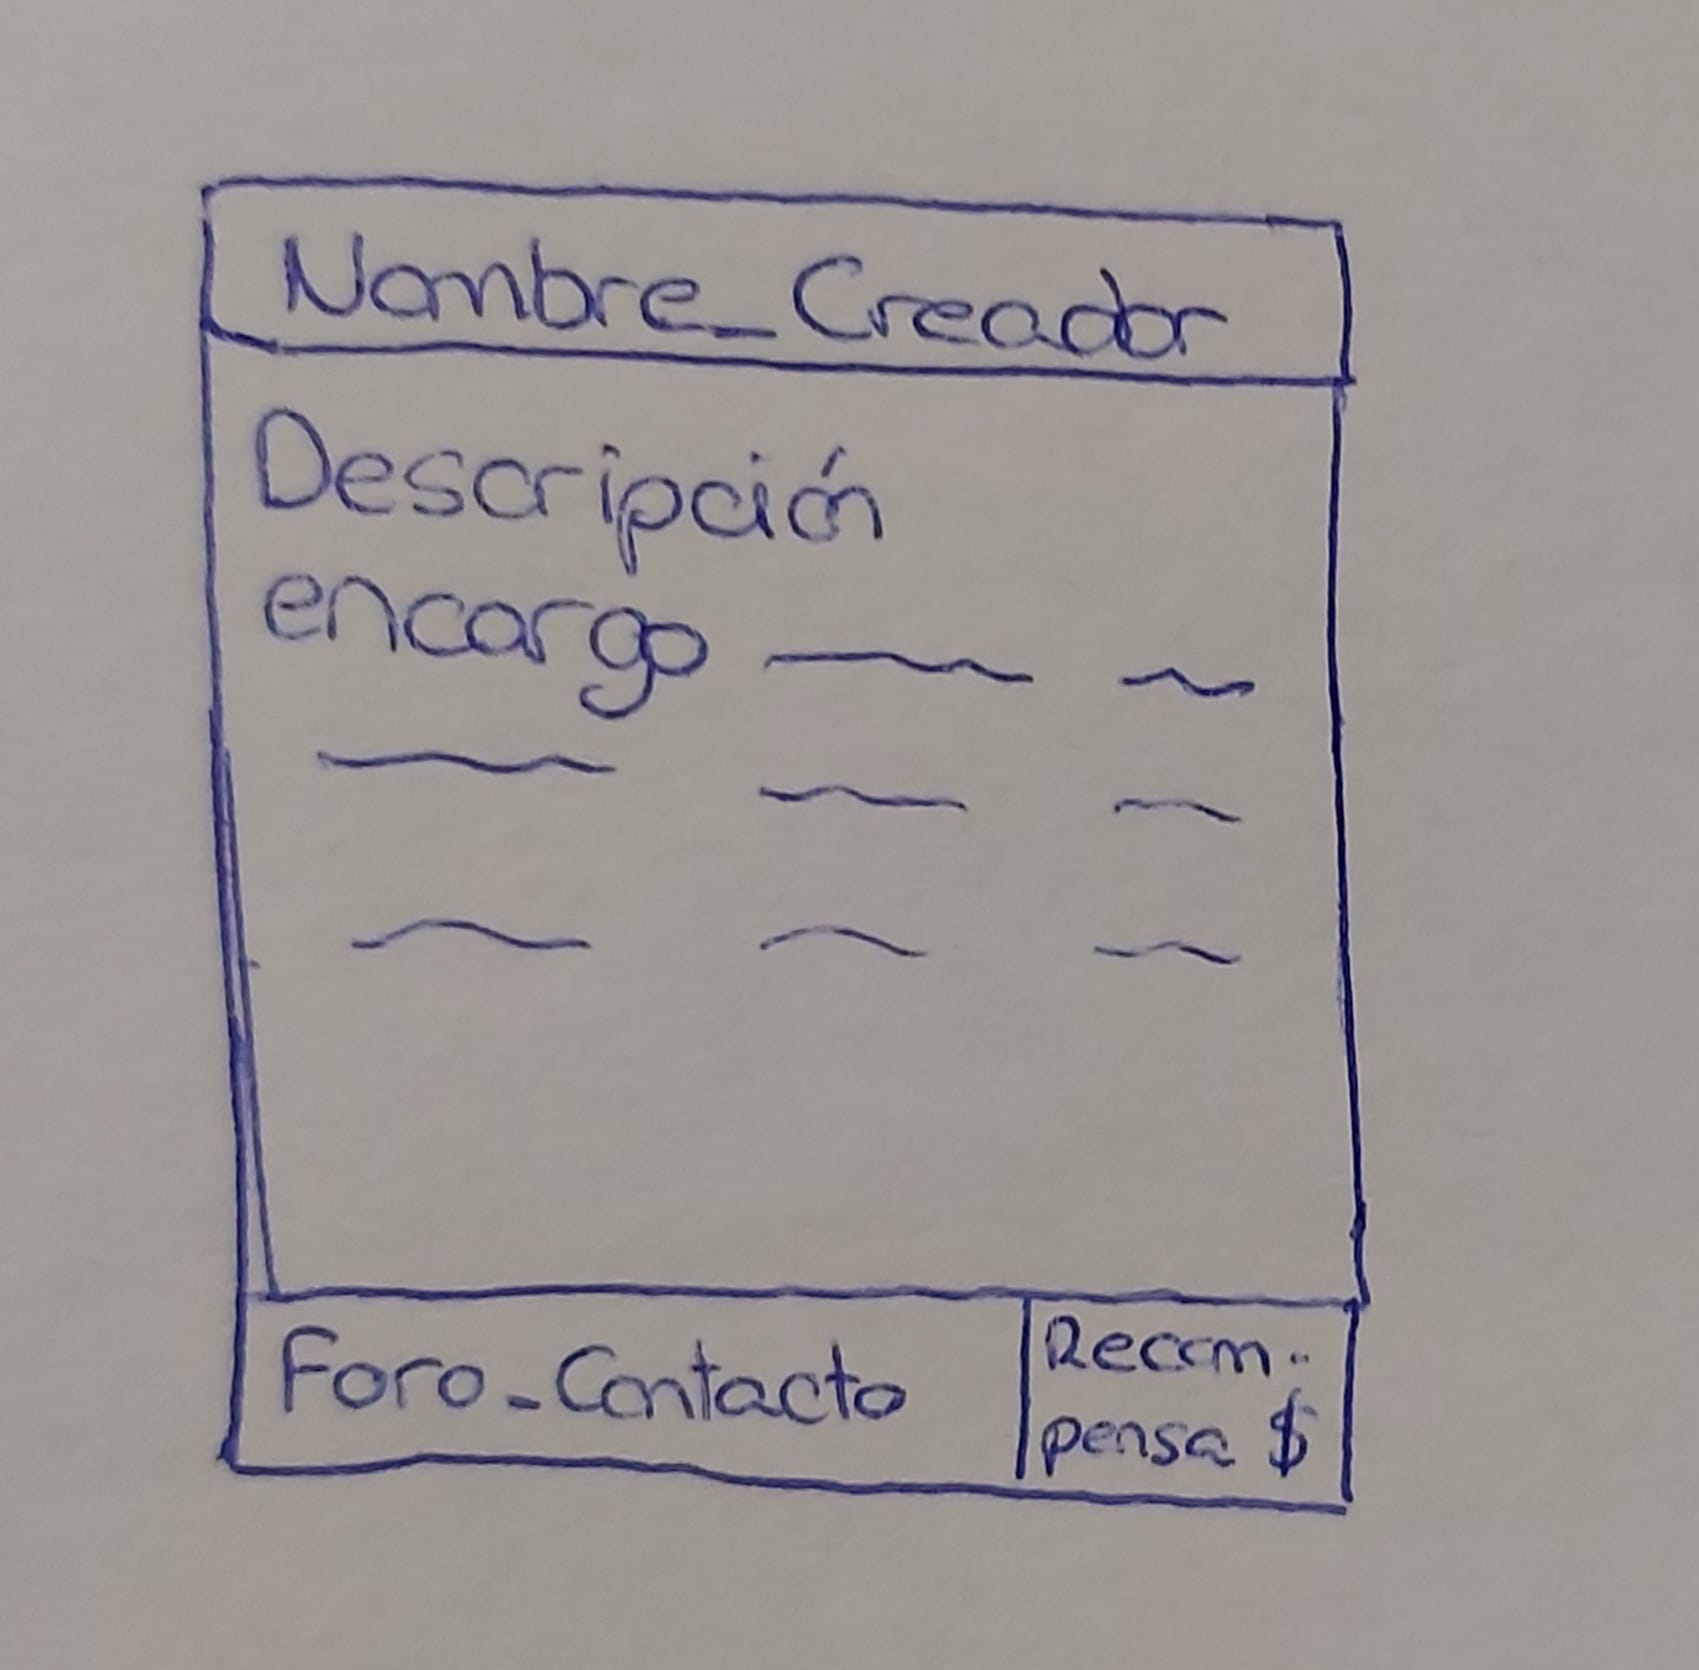 Nombre_Creador
Descripción
encargo
Foro_Contacto
Recom-
pensa $